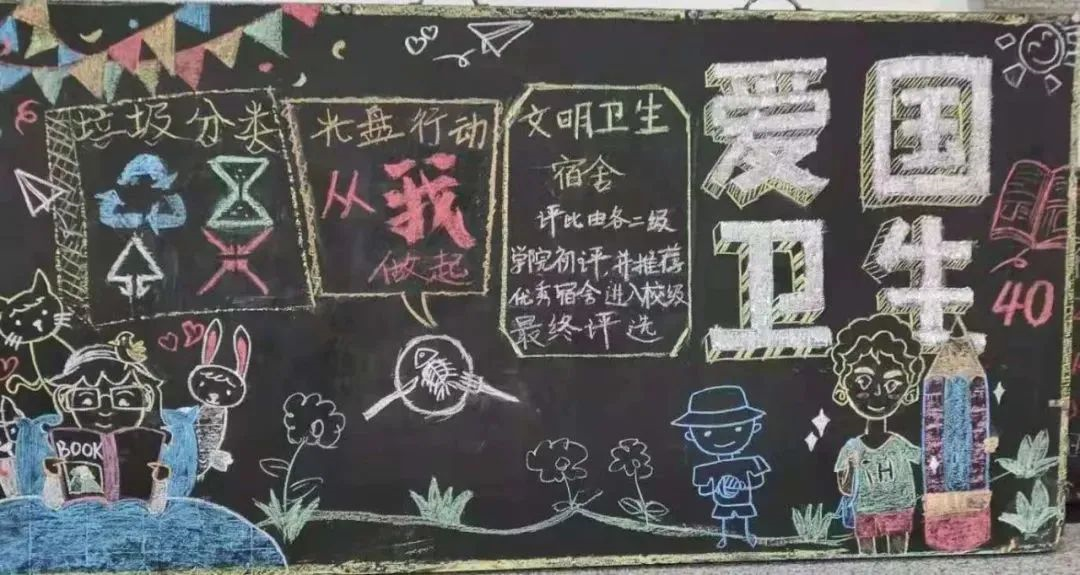 垃圾分类
光盘行动
从我
做起
文明卫生
宿舍
评比由各二级
学院初评,并推荐
优秀宿舍进入校级
最终评选
爱国
卫生
40
BOOK
H